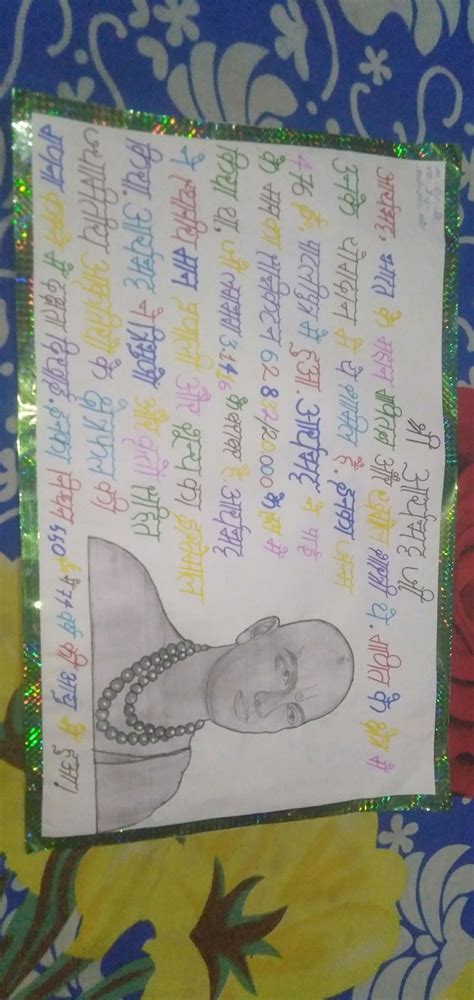 श्री आर्यभट्ट जी
आर्यभट्ट. भारत के महान गणितज्ञ और खगोल शास्त्री थे. गणित के क्षेत्र में
उनके योगदान में ये शामिल हैं. इनका जन्म
476 ई. पाटलिपुत्र में हुआ. आर्यभट्ट ने पाई
के मान का सन्निकटन 62832/20,000 के रूप में
किया था. जो लगभग 3.1416 के बराबर है. आर्यभट्ट
ने स्थानीय मान प्रणाली और शून्य का इस्तेमाल
किया. आर्यभट्ट ने त्रिभुजों और वृत्तों सहित
ज्यामितीय आकृतियों के क्षेत्रफल की
गणना करने में दक्षता दिखाई. इनका निधन 550 ई में 74 वर्ष की आयु में हुआ.